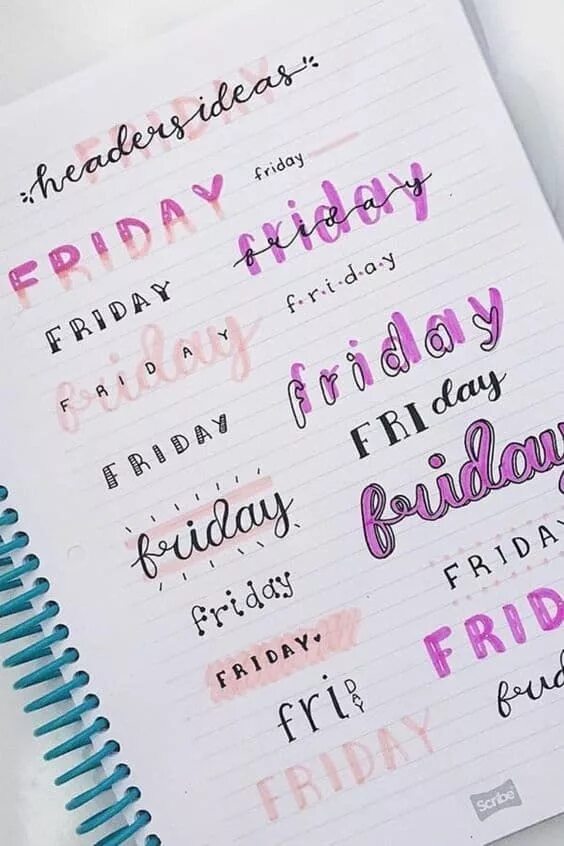 FRIDAY
headers ideas
friday
FRIDAY
friday
friday
FRIDAY
f.r.i.d.a.y
friday
FRIDAY
friday
FRIDAY
FRIday
friday
friday
FRIDAY
friday
FRIDAY♥
FRID
friDAY
FRIDAY
Scribe